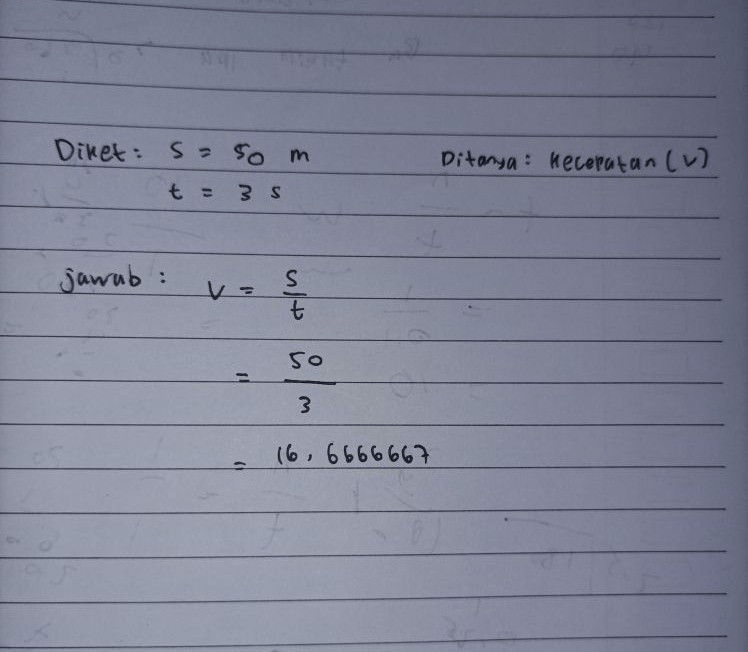 Diket: s = 50 m Ditanya: Kecepatan (v)
t = 3 s
jawab: v = s/t
= 50/3
= 16,6666667